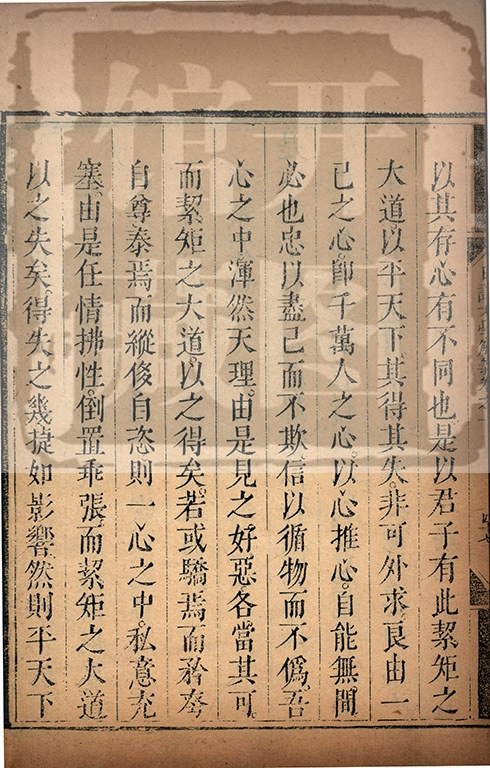 以其存心有不同也是以君子有此絜矩之
大道以平天下其得其失非可外求良由一
已之心卽千萬人之心以心推心自能無間
必也忠以盡己而不欺信以循物而不僞吾
心之中渾然天理由是見之好惡各當其可
而絜矩之大道以之得矣若或驕焉而矜夸
自尊泰焉而縱侈自恣則一心之中私意充
塞由是任情拂性倒置乖張而絜矩之大道
以之失矣得失之幾捷如影響然則平天下